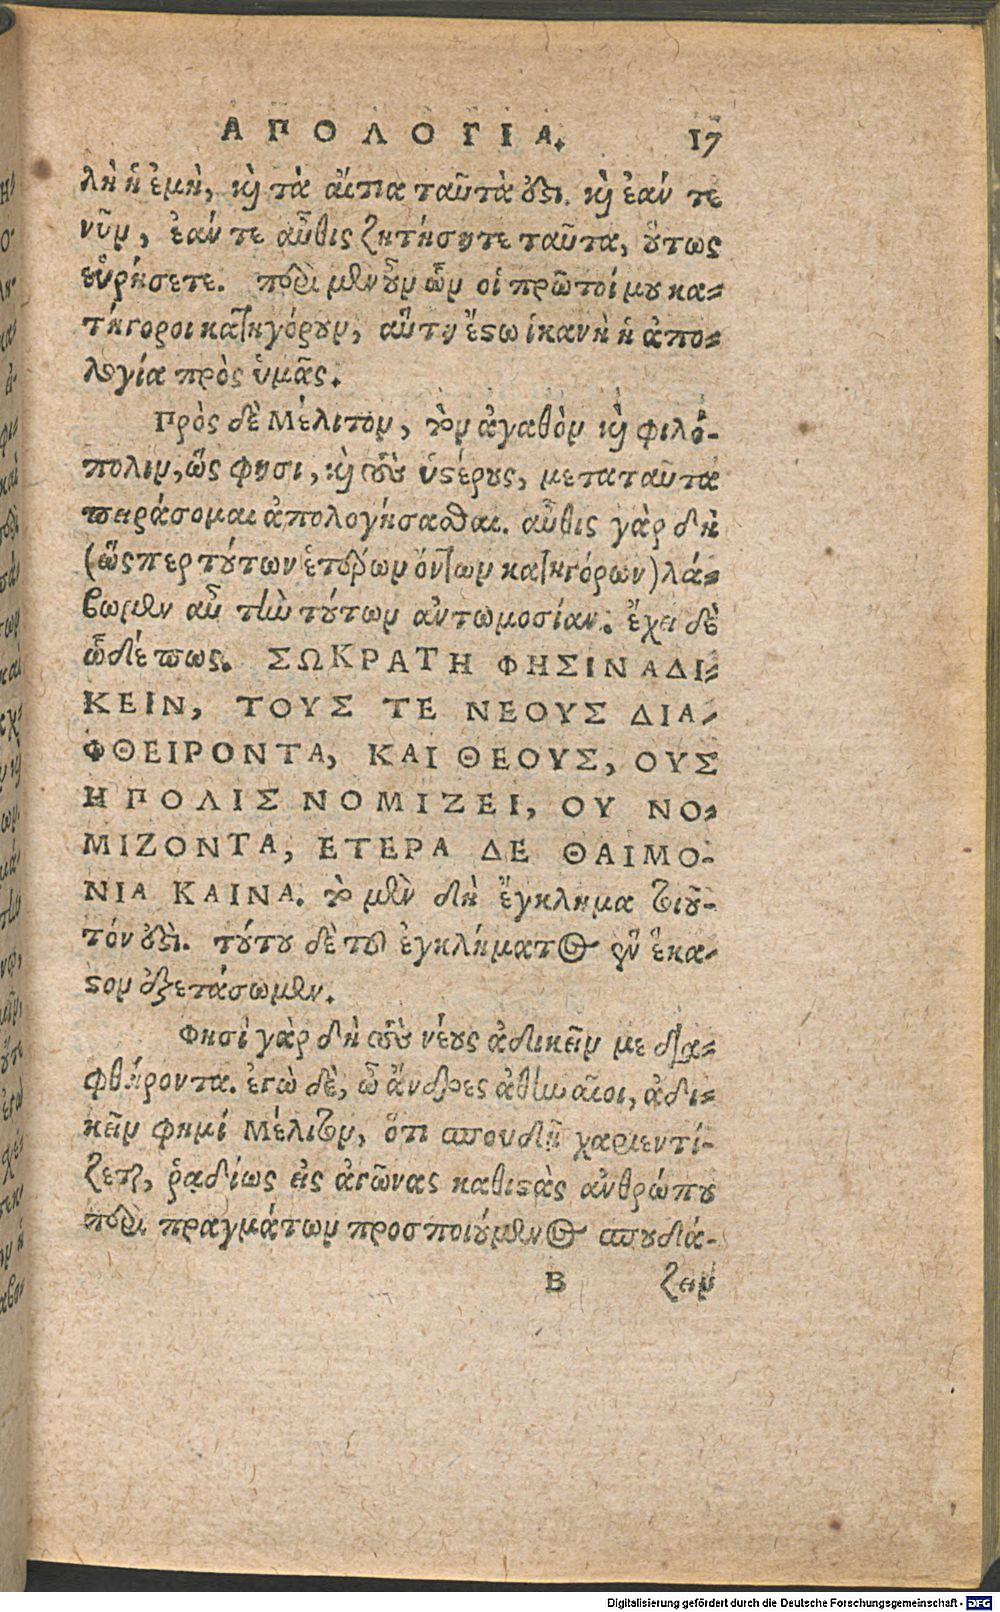 ΑΠΟΛΟΓΙΑ. 17
λὴ ἡ ἐμὴ, καὶ τὰ αἴτια ταῦτὰ ἐστι. καὶ ἐάν τε
νῦν, ἐάν τε αὖθις ζητήσητε ταῦτα, οὕτως
εὑρήσετε. περὶ μὲν οὖν ὧν οἱ πρῶτοί μου κα-
τήγοροι κατηγόρουν, αὕτη ἔστω ἱκανὴ ἡ ἀπο-
λογία πρὸς ὑμᾶς.
Πρὸς δὲ Μέλιτον, τὸν ἀγαθὸν καὶ φιλό-
πολιν, ὥς φησι, καὶ τοὺς ὑστέρους, μετα ταῦτα
πειράσομαι ἀπολογήσασθαι. αὖθις γὰρ δὴ
(ὥσπερ τούτων ἑτέρων ὄντων κατηγόρων) λά-
βωμεν αὖ τὴν τούτων ἀντωμοσίαν. ἔχει δὲ
ὧδέ πως. ΣΩΚΡΑΤΗ ΦΗΣΙΝ ΑΔΙ-
ΚΕΙΝ, ΤΟΥΣ ΤΕ ΝΕΟΥΣ ΔΙΑ-
ΦΘΕΙΡΟΝΤΑ, ΚΑΙ ΘΕΟΥΣ, ΟΥΣ
Η ΠΟΛΙΣ ΝΟΜΙΖΕΙ, ΟΥ ΝΟ-
ΜΙΖΟΝΤΑ, ΕΤΕΡΑ ΔΕ ΘΑΙΜΟ-
ΝΙΑ ΚΑΙΝΑ. τὸ μὲν δὴ ἔγκλημα τοιοῦ-
τόν ἐστὶ. τούτου δὲ τοῦ ἐγκλήματος ἓν ἕκα-
στον ἐξετάσωμεν.
Φησὶ γὰρ δὴ τοὺς νέους ἀδικεῖν με δια-
φθείροντα. ἐγὼ δὲ, ὦ ἄνδρες ἀθηναῖοι, ἀδι-
κεῖν φημί Μέλιτον, ὅτι σπουδῇ χαριεντί-
ζεται, ῥᾳδίως εἰς ἀγῶνας καθιστὰς ἀνθρώπου
περὶ πραγμάτων προσποιούμενος σπουδά-
Β ζειν
Digitalisierung gefördert durch die Deutsche Forschungsgemeinschaft - DFG